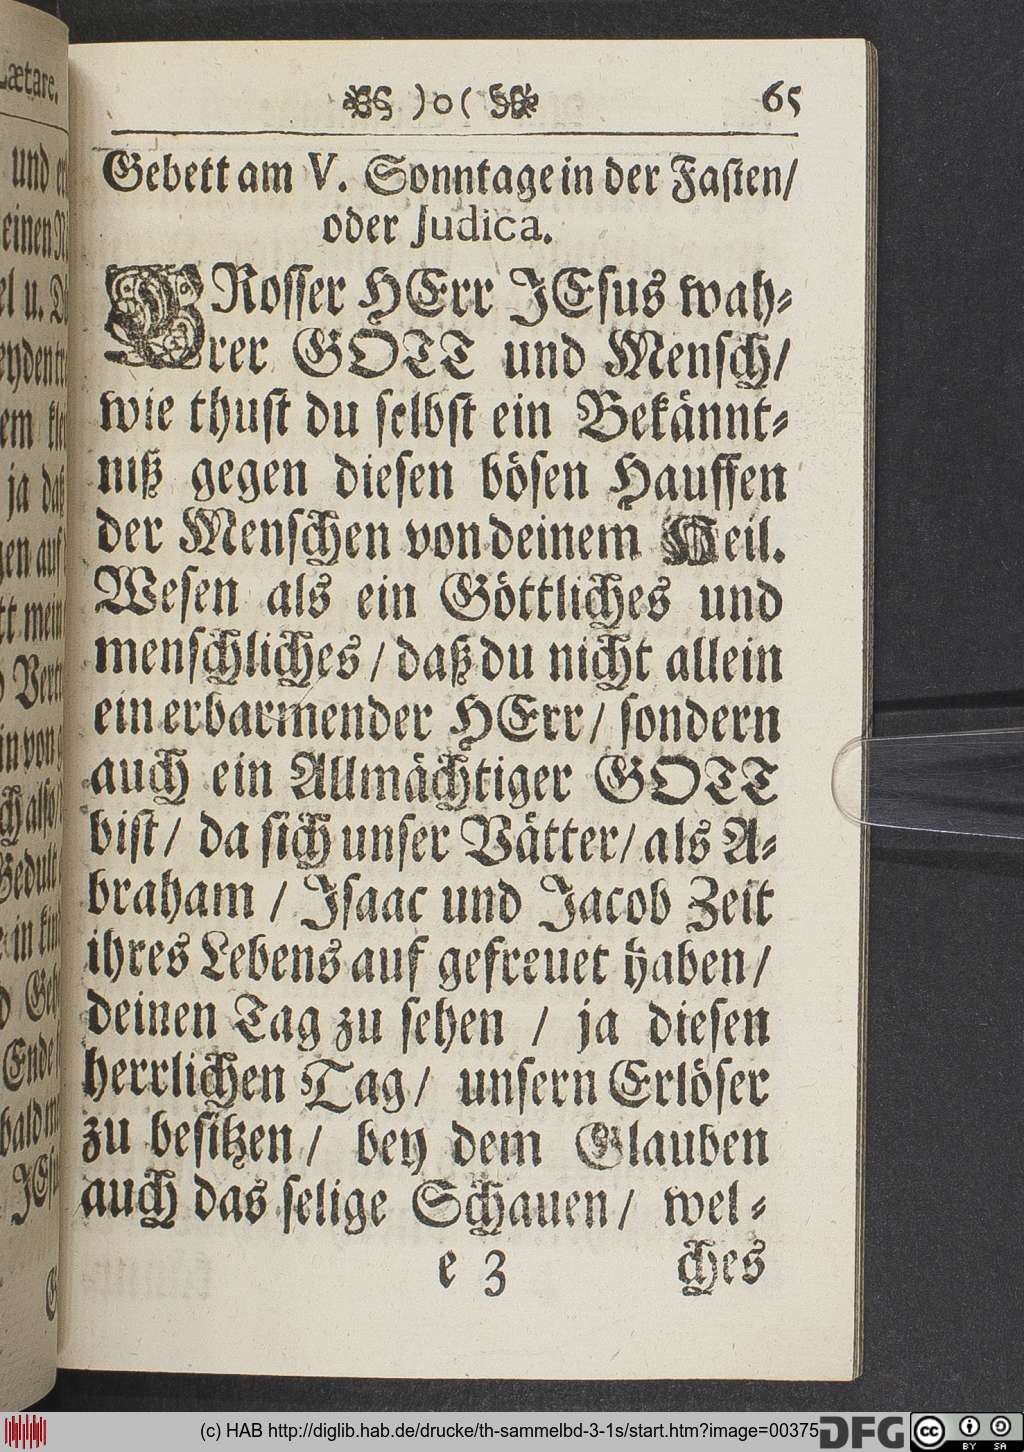 )o( 65
Gebett am V. Sonntage in der Fasten/
oder Judica.
GRosser HErr JEsus wah-
rer GOTT und Mensch/
wie thust du selbst ein Bekännt-
niß gegen diesen bösen Hauffen
der Menschen von deinem Heil.
Wesen als ein Göttliches und
menschliches/ daß du nicht allein
ein erbarmender HErr/ sondern
auch ein Allmächtiger GOTT
bist/ da sich unser Vätter/ als A-
braham/ Isaac und Jacob Zeit
ihres Lebens auf gefreuet haben/
deinen Tag zu sehen/ ja diesen
herrlichen Tag/ unsern Erlöser
zu besitzen/ bey dem Glauben
auch das selige Schauen/ wel-
e 3 ches
Lætare.
und
einen
u.
em
ja daß
gen auf
mein
in von
also
Gedult
in
Ende
bald
(c) HAB http://diglib.hab.de/drucke/th-sammelbd-3-1s/start.htm?image=00375
DFG
cc BY SA